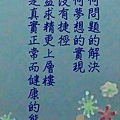 何問題的解決
何夢想的實現
沒有捷徑
益求精更上層樓
是真實正常而健康的